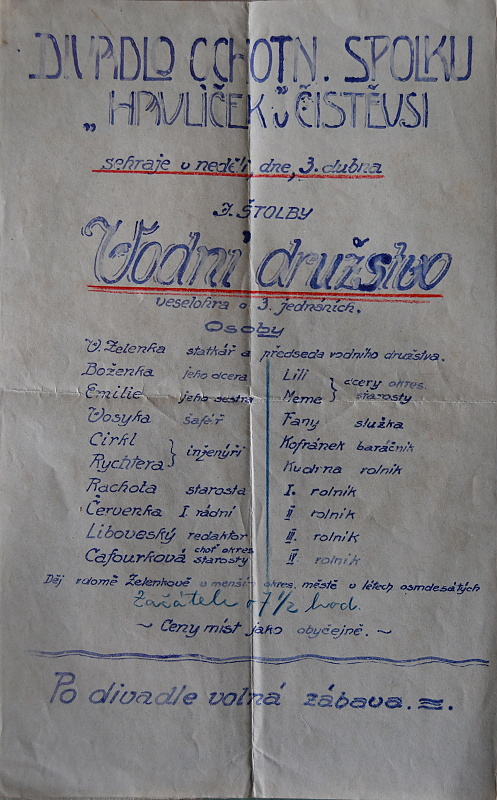 DIVADLO OCHOTN. SPOLKU
„HAVLÍČEK" v ČISTÉVSI
sehraje v neděli, dne, 3. dubna
J. ŠTOLBY
Vodní družstvo
veselohra o 3. jednáních.
Osoby
V. Zelenka statkář a předseda vodního družstva.
Boženka jeho dcera
Emilie jeho sestra
Vosyka šafář
Cirkl
Rychtera } inženýři
Rachota starosta
Červenka I. radní
Liboveský redaktor
Cafourková choť okres. starosty
Lili
Meme } dcery okres. starosty
Fany služka
Kofránek baráčník
Kudrna rolník
I. rolník
II. rolník
III. rolník
IV. rolník
Děj v domě Zelenkově v menším okres. městě v létech osmdesátých
Začátek o 7 1/2 hod.
~ Ceny míst jako obyčejně. ~
Po divadle volná zábava.